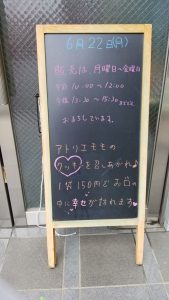 6月22日(月)
販売は 月曜日〜金曜日
午前 10:00〜12:00
午後 13:30〜15:30
おまちしています。
アトリエモモの
クッキーを召しあがれ♪
1袋150円でお口の
中に幸せが訪れます♥